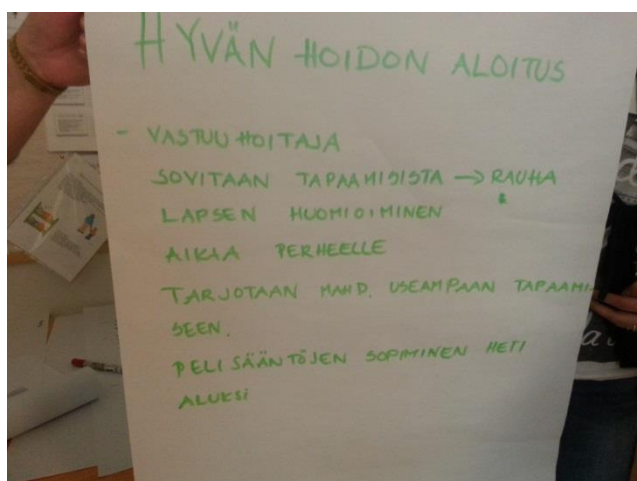 HYVÄN HOIDON ALOITUS
- VASTUUHOITAJA
SOVITAAN TAPAAMISISTA → RAUHA
LAPSEN HUOMIOIMINEN
AIKAA PERHEELLE
TARJOTAAN MAHD. USEAMPAAN TAPAAMI-
SEEN.
PELISÄÄNTÖJEN SOPIMINEN HETI
ALUKSI